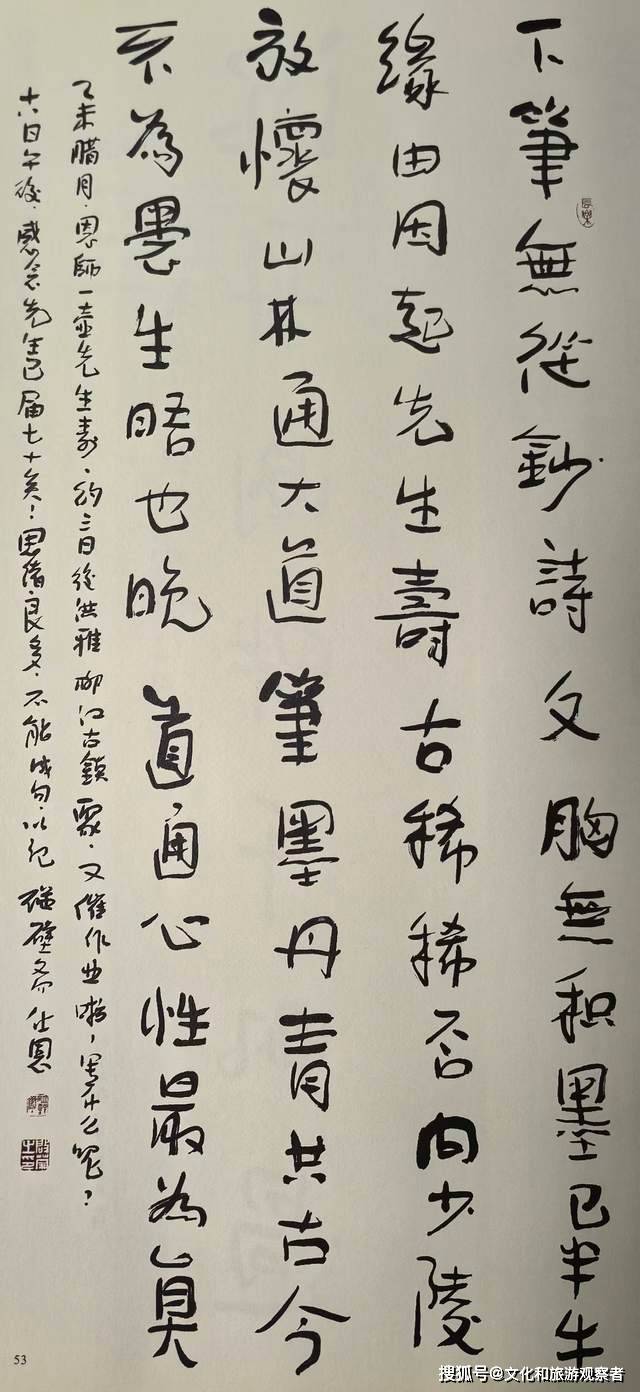 下筆無從鈔詩文胸無积墨已半生
緣由因起先生壽古稀稀否问少陵
放懷山林通大道筆墨丹青共古今
不為愚生晤也晚道通心性最為真
乙未腊月·恩師一壶先生壽·約三日後洪雅柳江古鎮聚·又催作业啦，写什么呢？
十六日午後·感念先生已届七十矣！思绪良多·不能成句·以记 壁齋仕恩
53
搜狐号@文化和旅游观察者